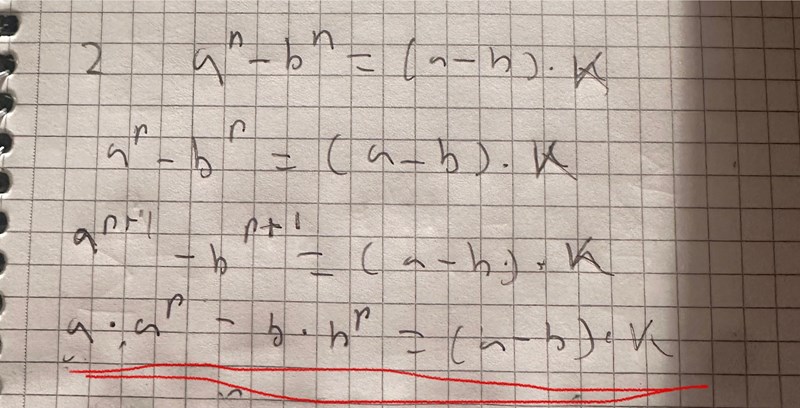 2 aⁿ - bⁿ = (a-b) · K
aⁿ - bⁿ = (a-b) · K
aⁿ⁺¹ - bⁿ⁺¹ = (a-b) · K
a · aⁿ - b · bⁿ = (a-b) · K